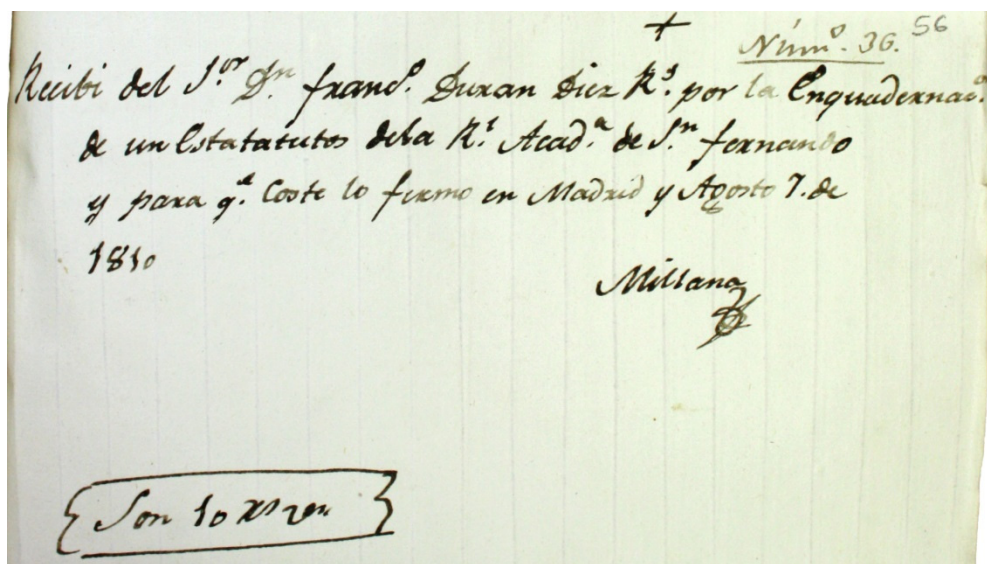 +
Núm.º 36. 56
Recibi del S.or D.n franc.º Duran Diez R.s por la Enquadernac.n
de un Estatatutos dela R.l Acad.a de S.n fernando
y para q.e Coste lo firmo en Madrid y Agosto 7. de
1810
Millana
Son 10 Rs vn